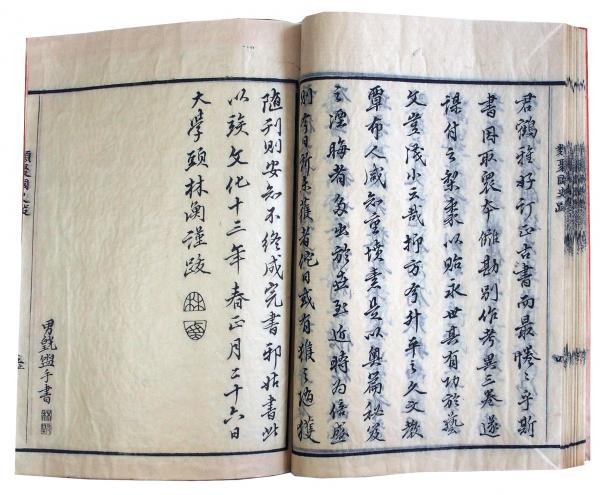 類聚國史跋
君鶴雅好訂正古書而最惓〻乎斯
書因取衆本讎勘別作考異三卷遂
謀付之梨棗以貽永世其有功於藝
文豈淺小云哉抑方今升平之久文教
覃布人咸知重墳素是以奧篇秘笈
之湮晦者多出於世至近時為倍盛
則今日所未獲者佗日或有獲之随獲
随刊則安知不終成完書邪姑書此
以竢文化十三年春正月二十六日
大學頭林衡謹跋
男皝盥手書
類聚國史跋